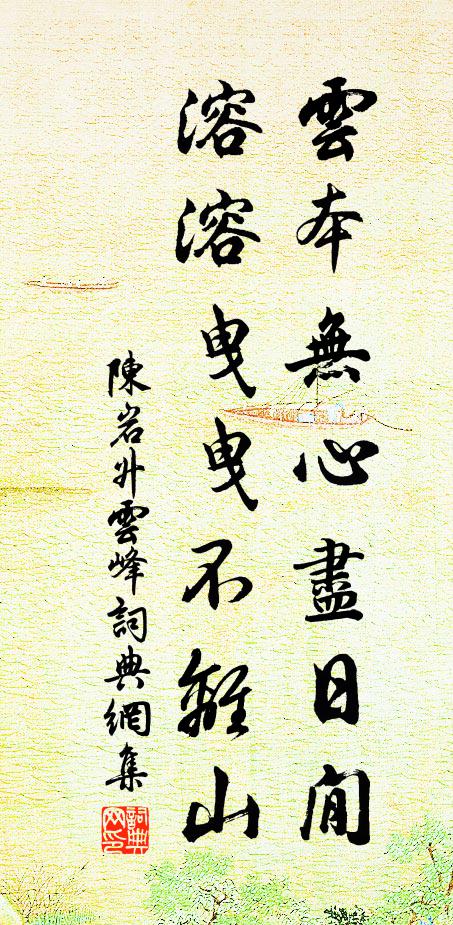 雲本無心盡日閒
溶溶曳曳不離山
陳岩升雲峰詞典網集
詞典网印